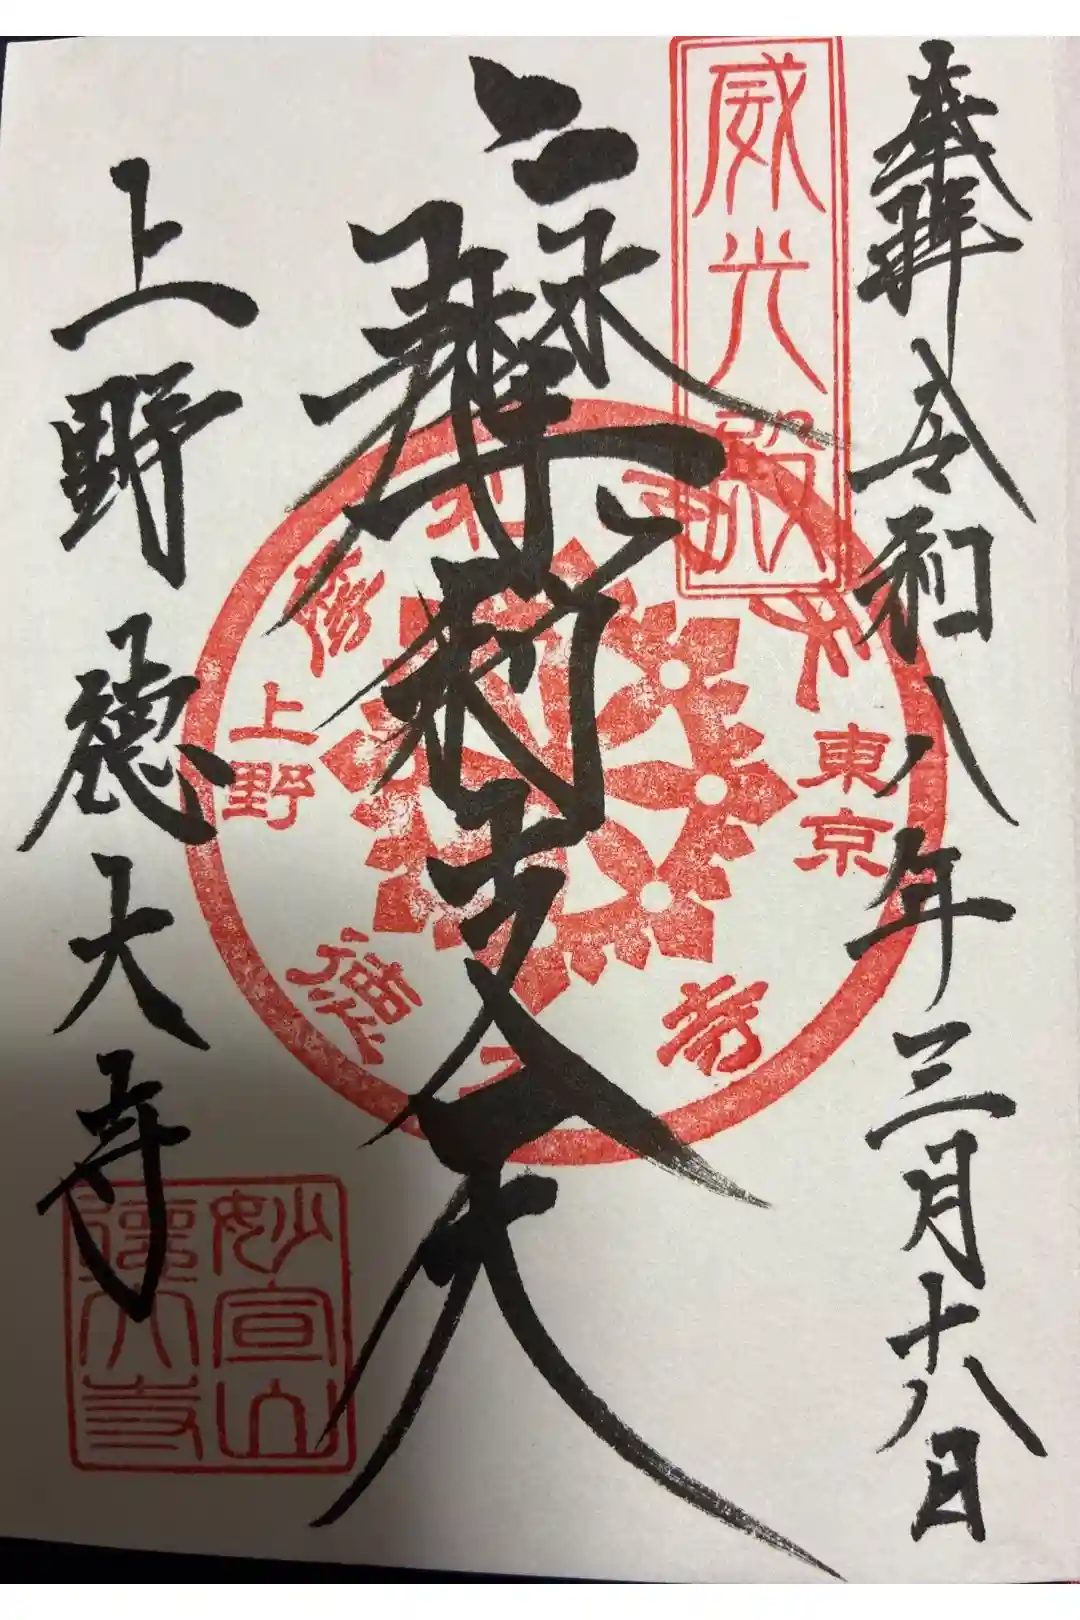 奉拝 令和八年三月十八日
威光殿
摩利支天
上野 德大寺
摩利支天
東京
上野
德大寺
妙宣山
德大寺